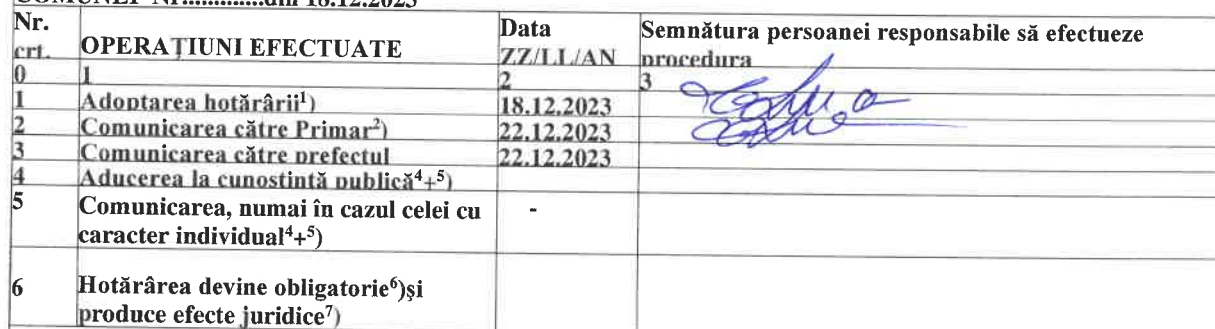 COMUNEI Nr..............din 18.12.2023
Nr. crt. OPERAȚIUNI EFECTUATE Data ZZ/LL/AN Semnătura persoanei responsabile să efectueze procedura
0 1 2 3
1 Adoptarea hotărârii¹) 18.12.2023
2 Comunicarea către Primar²) 22.12.2023
3 Comunicarea către prefectul 22.12.2023
4 Aducerea la cunostintă publică⁴+⁵)
5 Comunicarea, numai în cazul celei cu -
caracter individual⁴+⁵)
6 Hotărârea devine obligatorie⁶)şi
produce efecte juridice⁷)